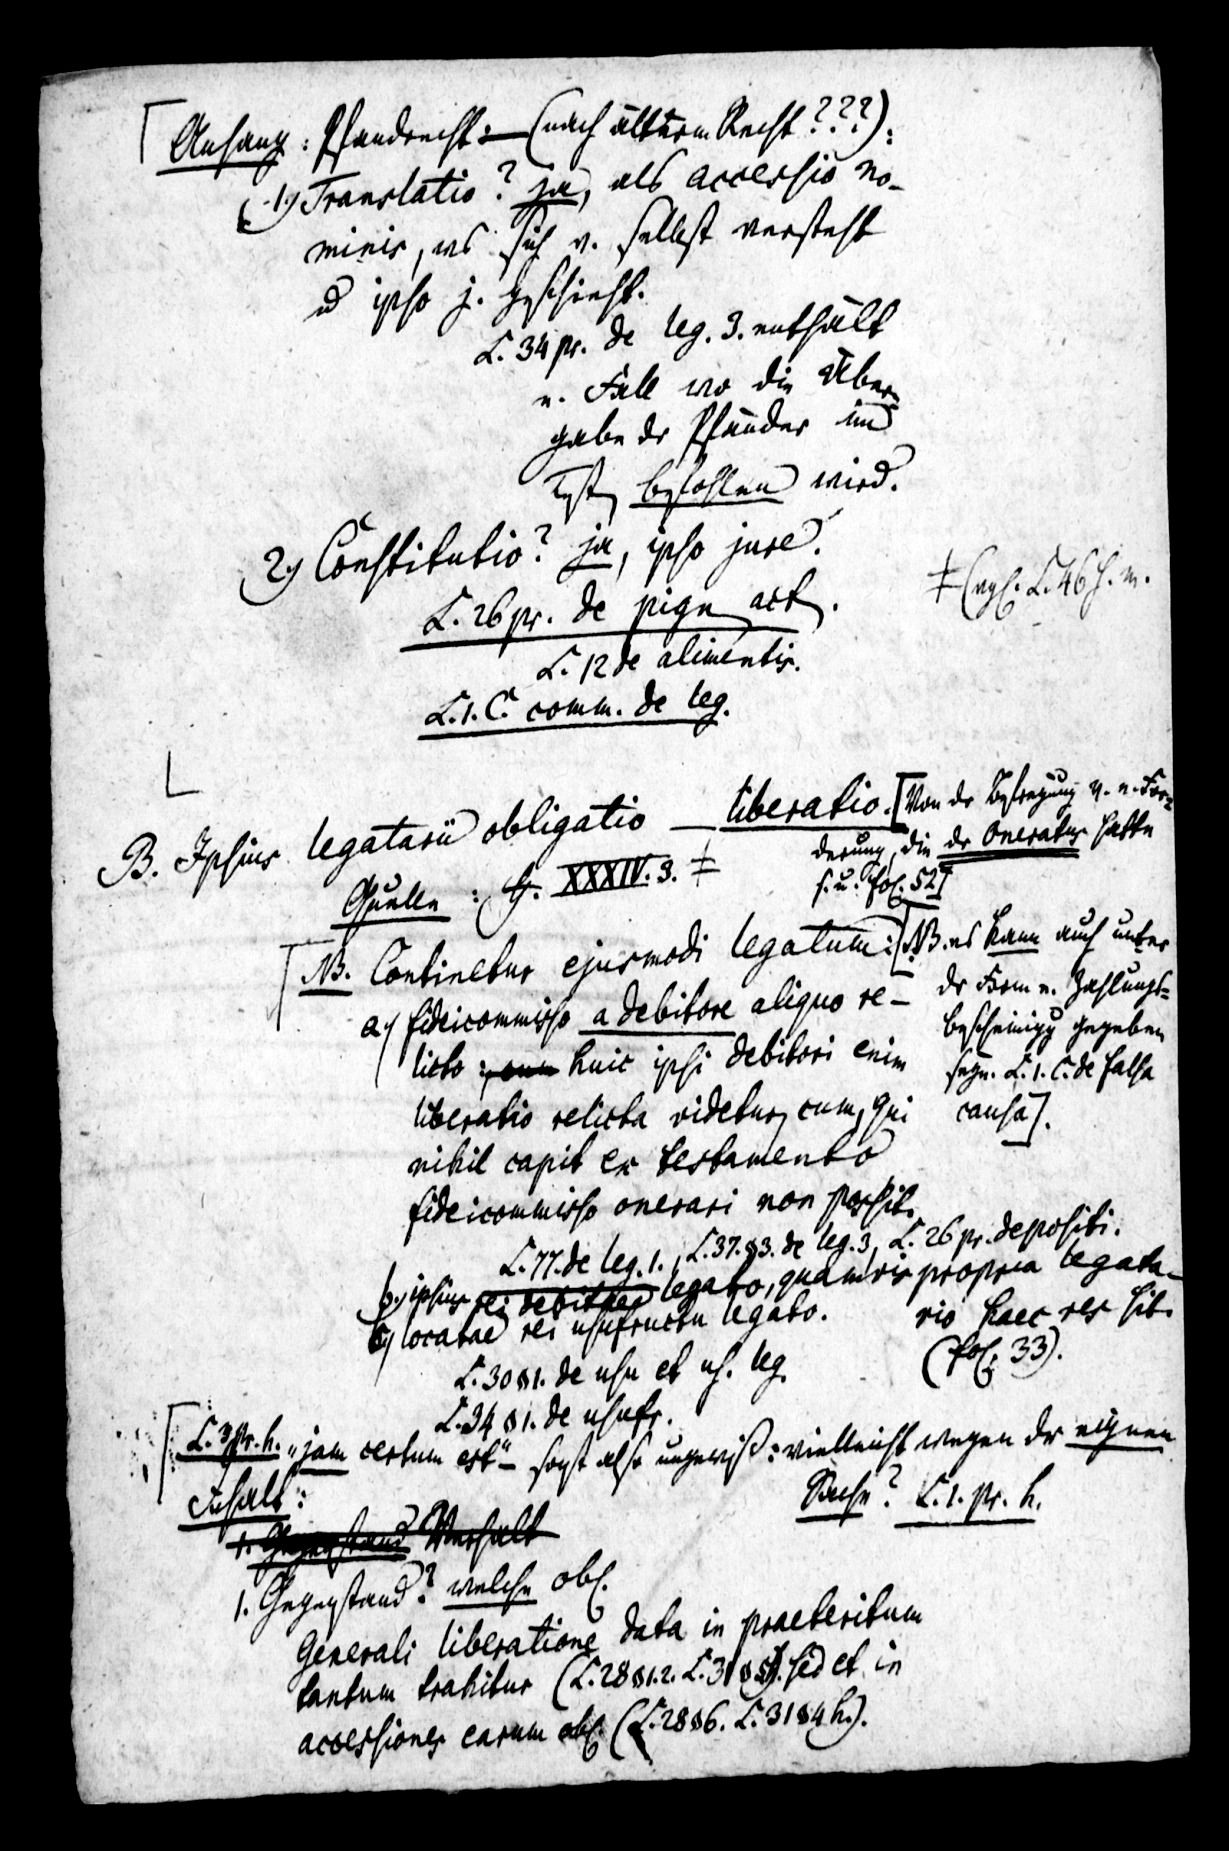 Anhang: Pfandrecht: — (nach älterm Recht???):
1.) Translatio? ja, als accessio no-
minis, was sich v. selbst versteht
u ipso j. geschieht.
L. 34 pr. de leg. 3. enthält
e. Fall wo die Über-
gabe der Pfänder im
Test. befohlen wird.
2.) Constitutio? ja, ipso jure.
L. 26 pr. de pign. act.
L. 12 de alimentis.
L. 1. C. comm. de leg.
‡ (vgl. L. 46 h. m.
B. Ipsius legatarii obligatio — liberatio. [Von der Befreyung v. e. For-
derung, die der Oneratus hatte
s. u. fol. 52]
Quelle: D. XXXIV. 3. ‡
NB. Continetur ejusmodi legatum: [NB. es kann auch unter
der Form e. Zahlungs-
bescheinigg gegeben
seyn. L. 1. C. de falsa
causa].
a) fideicommisso a debitore aliquo re-
licto: huic ipsi debitori enim
liberatio relicta videtur, cum, qui
nihil capit ex testamento
fideicommisso onerari non possit.
L. 77. de leg. 1., L. 37. §3. de leg. 3, L. 26 pr. depositi.
b.) ipsius rei debitae legato, quamvis propria legata-
rio haec res sit.
(fol. 33).
c) locatae rei usufructu legato.
L. 30 §1. de usu et us. leg.
L. 34 §1. de usufr.
L. 3 pr. h. "jam certum est" — sonst also ungewiß: vielleicht wegen der eignen
Sache? L. 1. pr. h.
Inhalt:
1. Gegenstand
1. Gegenstand? welche obl.
Generali liberatione data in praeteritum
tantum trahitur (L. 28 §1. 2. L. 31 sed et in
accessiones earum obl. (L. 28 §6. L. 31 §4 h.).